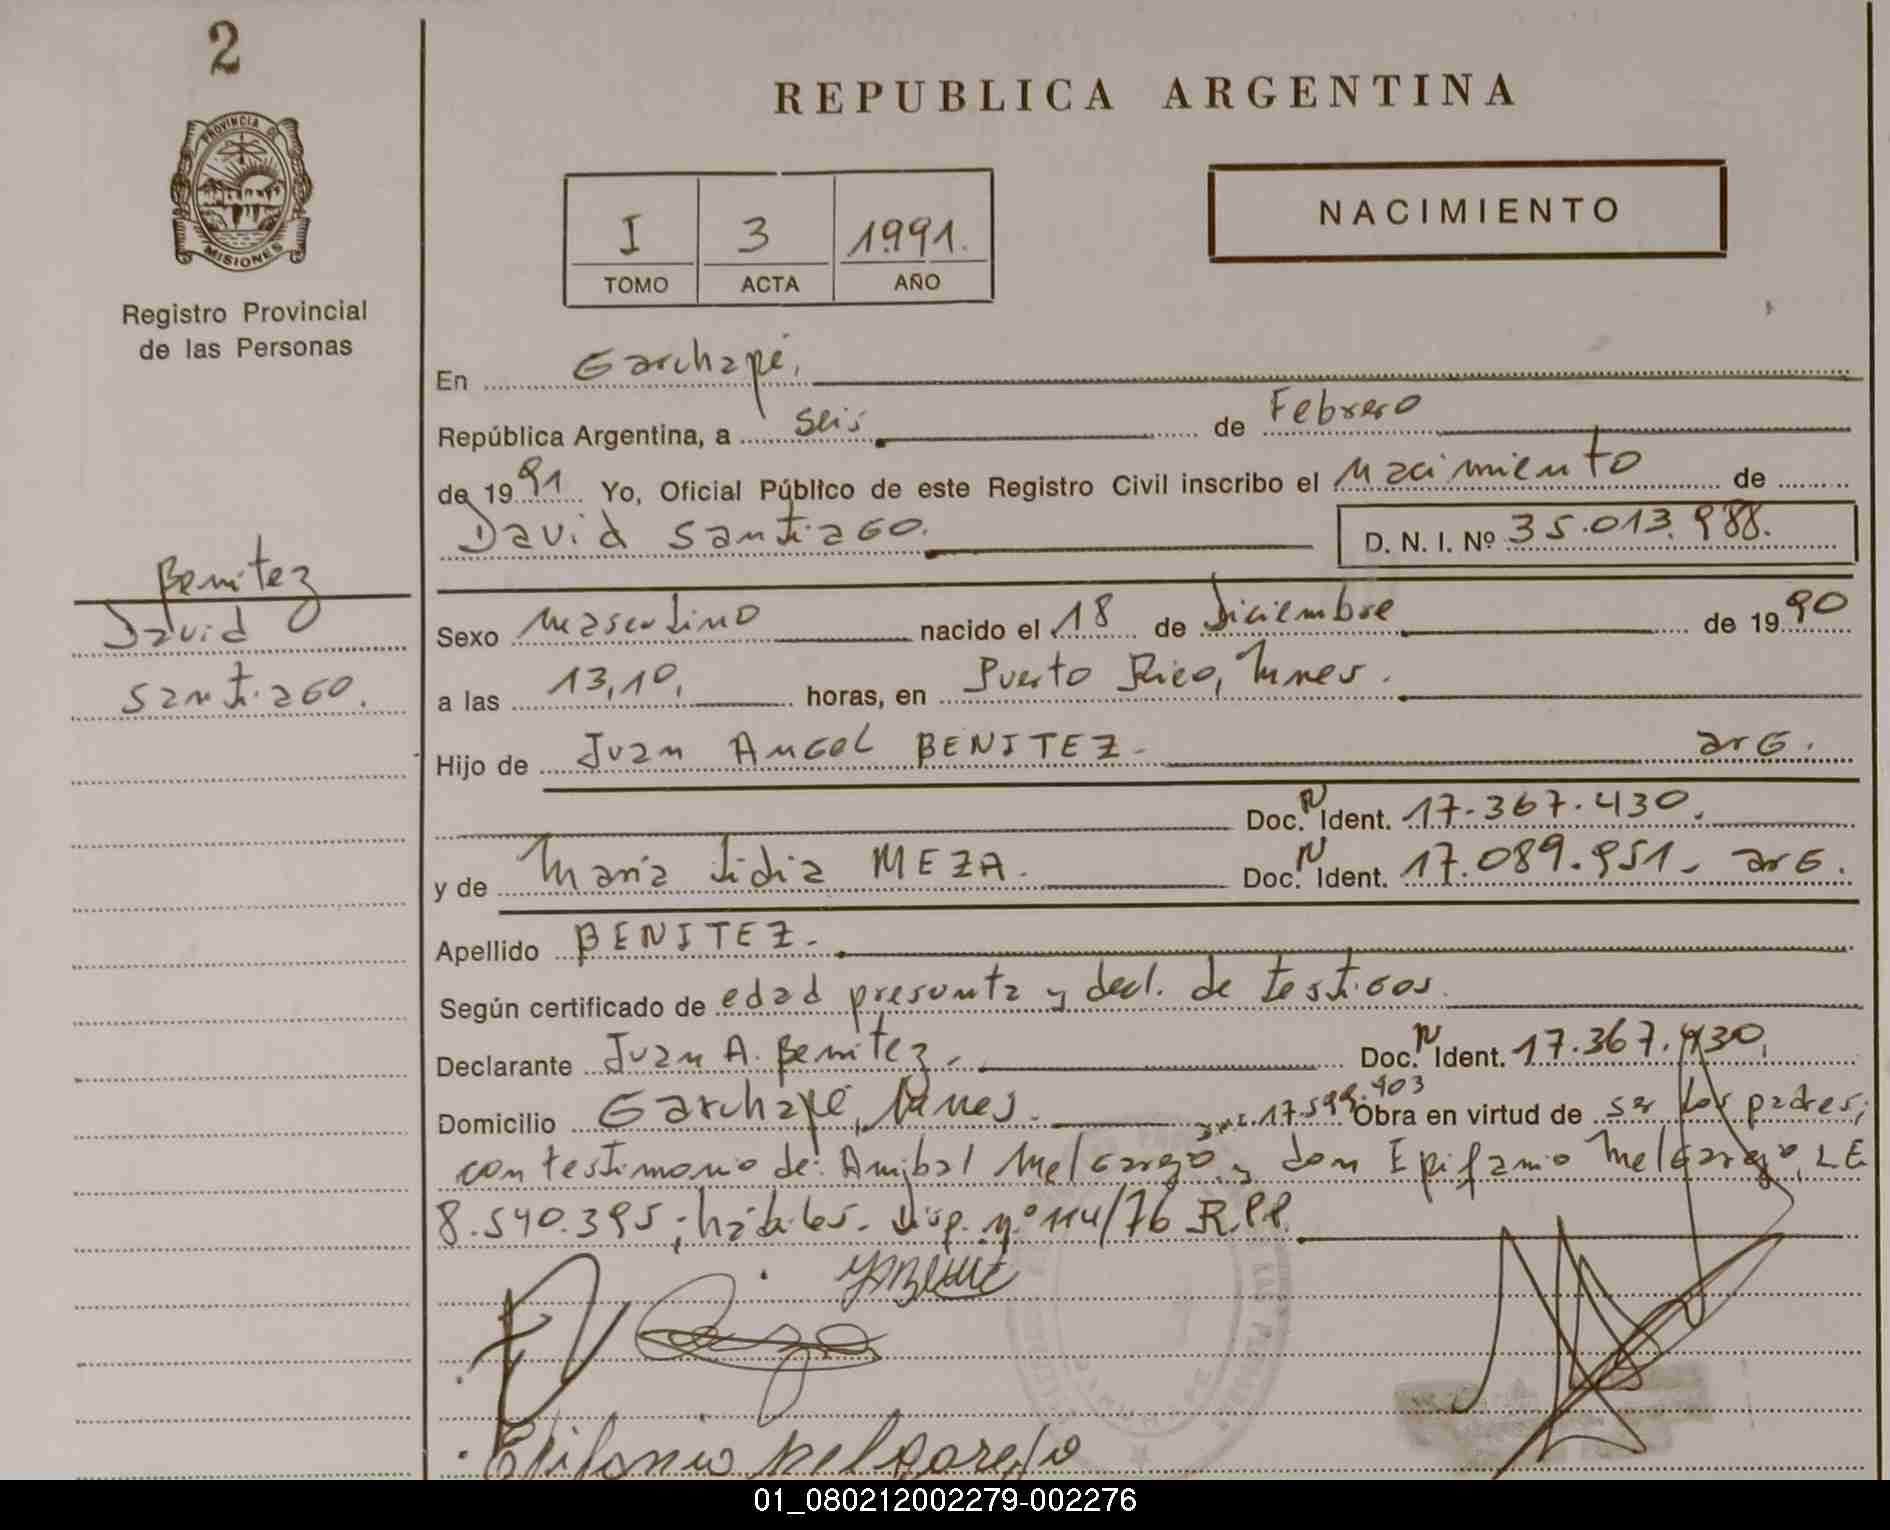 2
REPUBLICA ARGENTINA
PROVINCIA DE
MISIONES
Registro Provincial
de las Personas
I 3 1991.
TOMO ACTA AÑO
NACIMIENTO
En Garuhapé,
República Argentina, a seis de Febrero
de 1991 Yo, Oficial Público de este Registro Civil inscribo el Nacimiento de
David Santiago.
D. N. I. Nº 35.013.988.
Benitez
David
Santiago.
Sexo Masculino nacido el 18 de Diciembre de 1990
a las 13,10, horas, en Puerto Rico, Mnes.
Hijo de Juan Angel BENITEZ. arg.
Doc. N Ident. 17.367.430.
y de María Lidia MEZA. Doc. N Ident. 17.089.951. arg.
Apellido BENITEZ.
Según certificado de edad presunta y decl. de testigos.
Declarante Juan A. Benitez. Doc. N Ident. 17.367.430,
Domicilio Garuhapé, Mnes. 17.599.403 Obra en virtud de ser los padres;
con testimonio de: Anibal Melgarejo y don Epifanio Melgarejo, LE
8.540.395; hábiles. Disp. nº 114/76 R.P.P.
Epifanio Melgarejo
01_080212002279-002276